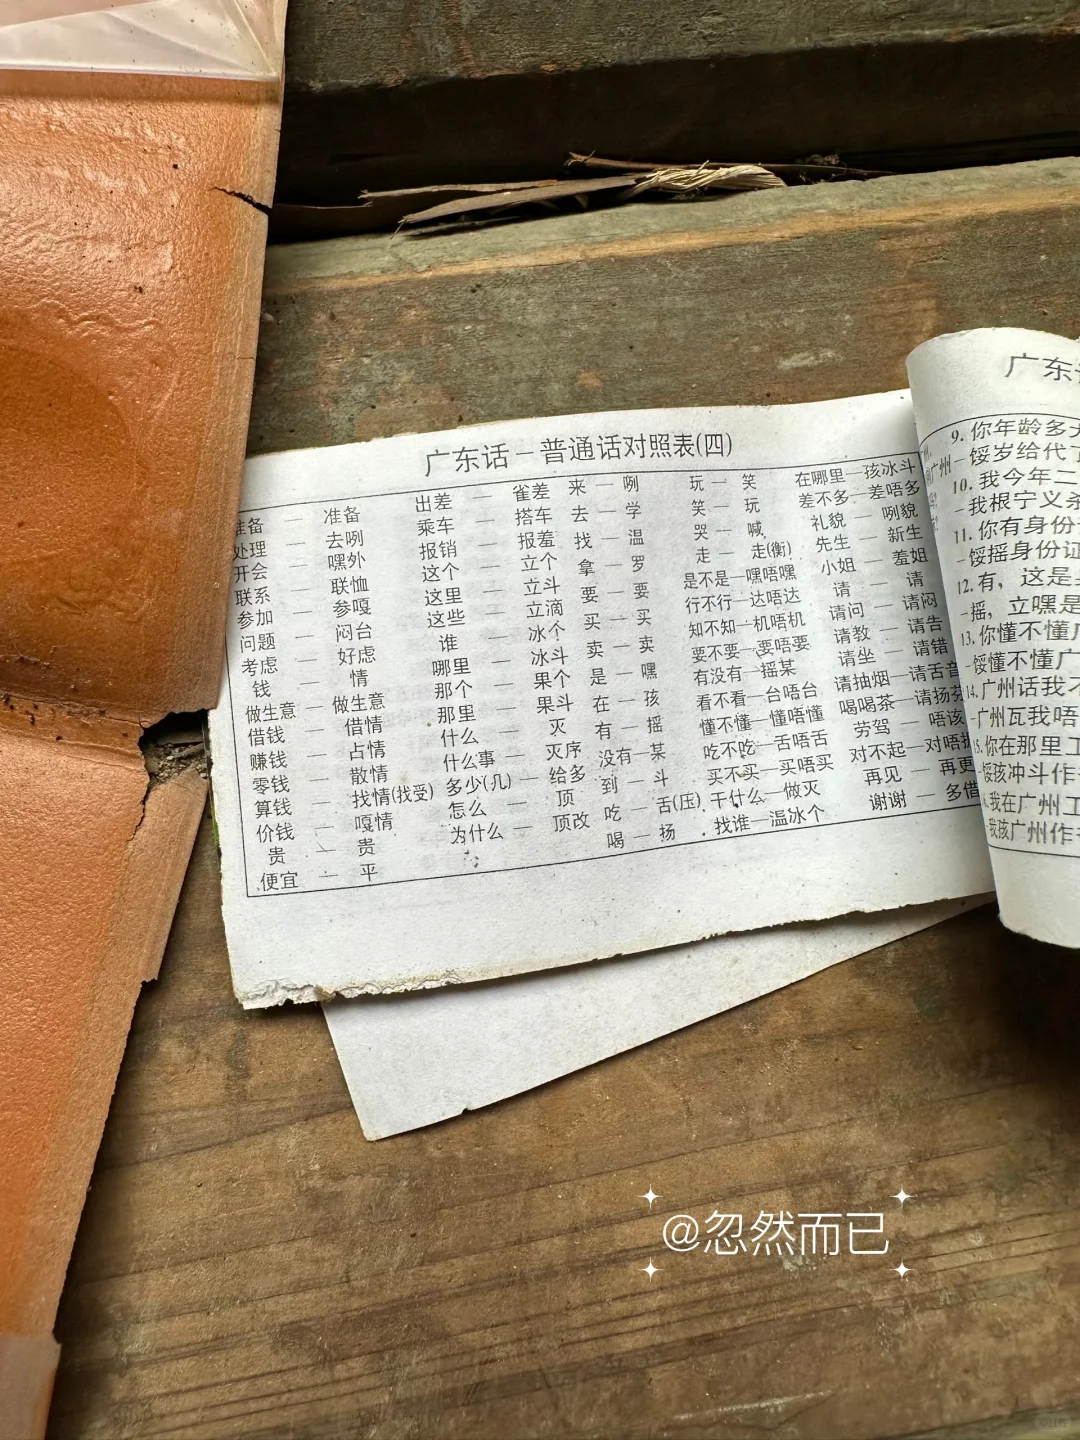 广东话 — 普通话对照表(四)
准备 — 准备
处理 — 去咧
开会 — 嘿外
联系 — 联恤
参加 — 参嘎
问题 — 闷台
考虑 — 好虑
钱 — 情
做生意 — 做生意
借钱 — 借情
赚钱 — 占情
零钱 — 散情
算钱 — 找情(找受)
价钱 — 嘎情
贵 — 贵
便宜 — 平
出差 — 雀差
乘车 — 搭车
报销 — 报羞
这个 — 立个
这里 — 立斗
这些 — 立滴
谁 — 冰个
哪里 — 冰斗
那个 — 果个
那里 — 果斗
什么 — 灭
什么事 — 灭序
多少(几) — 给多
怎么 — 顶
为什么 — 顶改
来 — 咧
去 — 学
找 — 温
拿 — 罗
要 — 要
买 — 买
卖 — 卖
是 — 嘿
在 — 孩
有 — 摇
没有 — 某
到 — 斗
吃 — 舌(压)
喝 — 扬
玩 — 笑
笑 — 玩
哭 — 喊
走 — 走(衡)
是不是 — 嘿唔嘿
行不行 — 达唔达
知不知 — 机唔机
要不要 — 要唔要
有没有 — 摇某
看不看 — 台唔台
懂不懂 — 懂唔懂
吃不吃 — 舌唔舌
买不买 — 买唔买
干什么 — 做灭
找谁 — 温冰个
在哪里 — 孩冰斗
差不多 — 差唔多
礼貌 — 咧貌
先生 — 新生
小姐 — 羞姐
请 — 请
请问 — 请闷
请教 — 请告
请坐 — 请错
请抽烟 — 请舌音
喝喝茶 — 请扬
劳驾 — 唔该
对不起 — 对唔
再见 — 再更
谢谢 — 多借
广东话
9. 你年龄多
— 馁岁给代
10. 我今年二
— 我根宁义
11. 你有身份
— 馁摇身份证
12. 有，这是
— 摇，立嘿是
13. 你懂不懂广
— 馁懂不懂广
14. 广州话我
— 广州瓦我唔
15. 你在那里工
— 馁孩冲斗作
我在广州工
我孩广州作
@忽然而已